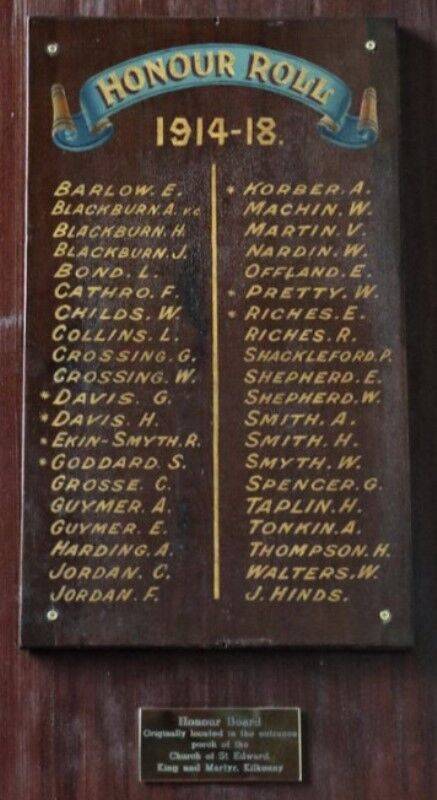 HONOUR ROLL
1914-18.
BARLOW. E.
BLACKBURN. A. V.C
BLACKBURN. H
BLACKBURN. J.
BOND. L.
CATHRO. F.
CHILDS. W.
COLLINS. L.
CROSSING. G.
CROSSING. W.
* DAVIS. G.
* DAVIS. H.
* EKIN-SMYTH. R.
* GODDARD. S.
GROSSE. C.
GUYMER. A.
GUYMER. E.
HARDING. A.
JORDAN. C.
JORDAN. F.
* KORBER. A.
MACHIN. W.
MARTIN. V.
NARDIN. W.
OFFLAND. E.
* PRETTY. W.
* RICHES. E.
RICHES. R.
SHACKLEFORD. P.
SHEPHERD. E.
SHEPHERD. W.
SMITH. A.
SMITH. H.
SMYTH. W.
SPENCER. G.
TAPLIN. H.
TONKIN. A.
THOMPSON. H.
WALTERS. W.
J. HINDS.
Honour Board
Originally located in the entrance
porch of the
Church of St Edward,
King and Martyr, Kilkenny